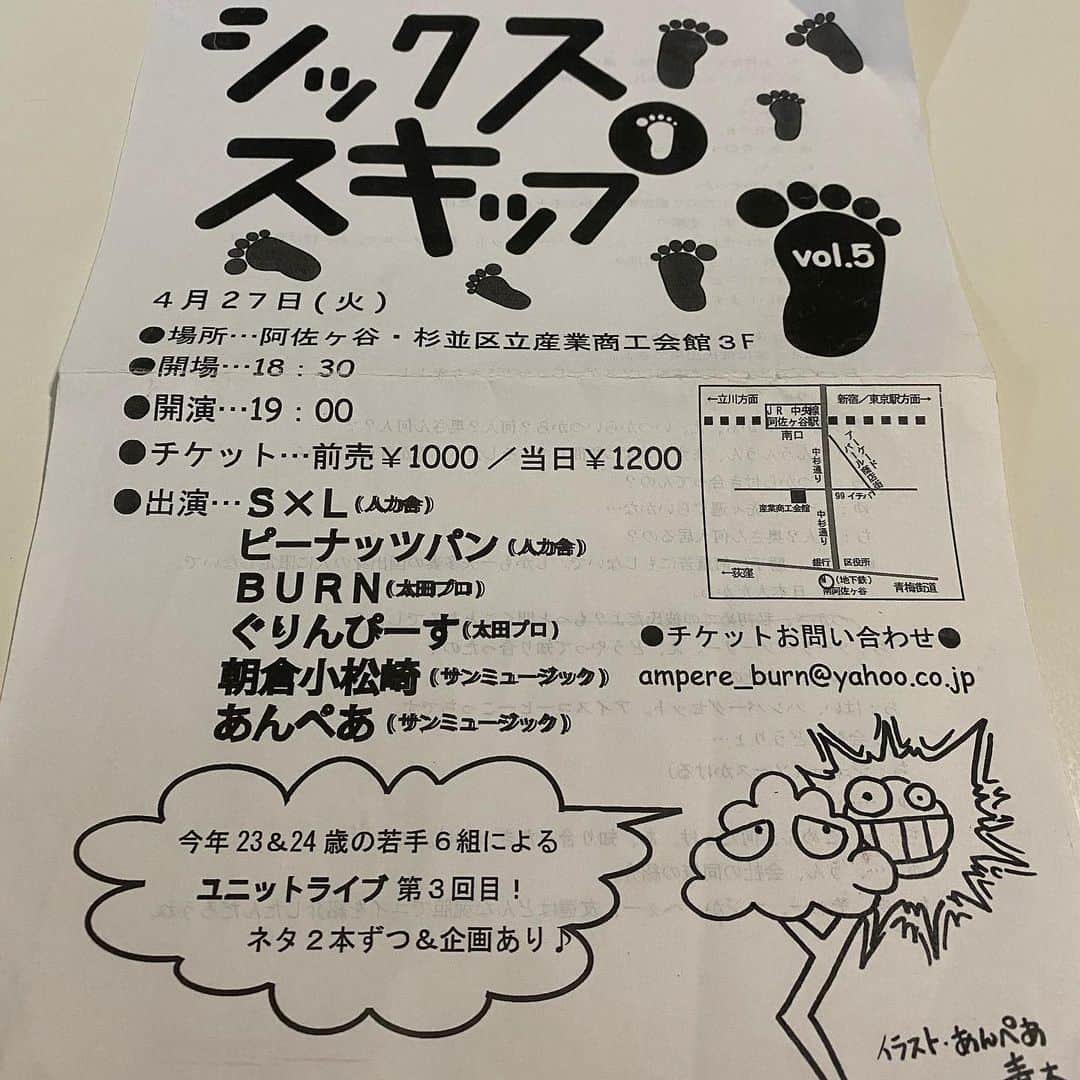 シックス
スキップ
vol.5
4月27日(火)
●場所…阿佐ヶ谷・杉並区立産業商工会館3F
●開場…18:30
●開演…19:00
●チケット…前売¥1000/当日¥1200
●出演…S×L(人力舎)
ピーナッツパン(人力舎)
BURN(太田プロ)
ぐりんぴーす(太田プロ)
朝倉小松崎(サンミュージック)
あんぺあ(サンミュージック)
←立川方面
新宿/東京駅方面→
JR 中央線
阿佐ヶ谷駅
南口
中杉通り
アーケード
パール商店街
産業商工会館
99 イチバ
中杉通り
銀行
区役所
←荻窪
(地下鉄)
南阿佐ヶ谷
青梅街道
●チケットお問い合わせ●
ampere_burn@yahoo.co.jp
今年23&24歳の若手6組による
ユニットライブ 第3回目!
ネタ2本ずつ&企画あり♪
イラスト・あんぺあ